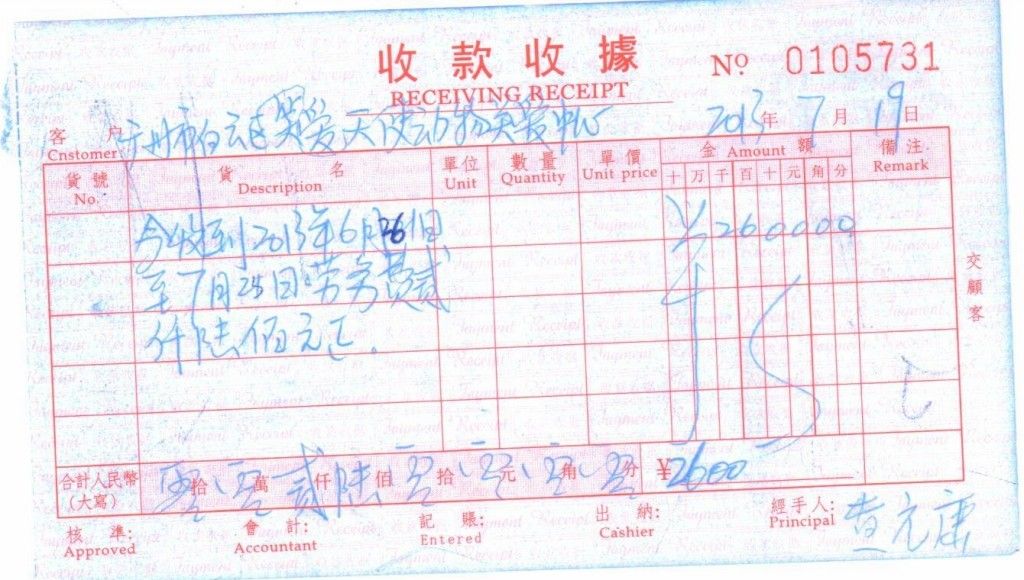 收款收據
RECEIVING RECEIPT
Nº 0105731
客戶 广州市白云区笑爱天使动物关爱中心 2013年7月19日
Cnstomer:
貨號 貨名 單位 數量 單價 金額 備注
No. Description Unit Quantity Unit price Amount Remark
十 万 千 百 十 元 角 分
今收到2013年6月26日 ¥260000
至7月25日劳务费贰
仟陆佰元正.
交顧客
合計人民幣 零拾零萬贰仟陆佰零拾零元零角零分 ¥2600
(大寫)
核準: 會計: 記賬: 出納: 經手人: 查元康
Approved Accountant Entered Cashier Principal